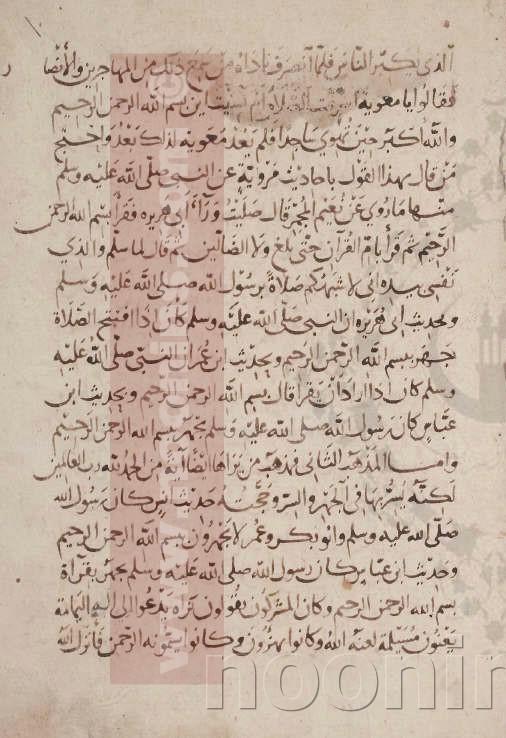 الذي يكبر الناس فلما انصرف ناداه من سمع ذلك من المهاجرين والأنصار
فقالوا يا معوية اسرقت الصلاة ام نسيت اين بسم الله الرحمن الرحيم
والله أكبر حين تهوي ساجدا فلم يعد معوية لذلك بعد واحتج
من قال بهذا القول باحاديث مروية عن النبي صلى الله عليه وسلم
منها ما روي عن نعيم المجمر قال صليت وراء ابى هريره فقرأ بسم الله الرحمن
الرحيم ثم قرأ بام القرآن حتى بلغ ولا الضالين ثم قال لما سلم والذي
نفسي بيده اني لاشبهكم صلاة برسول الله صلى الله عليه وسلم
وبحديث ابى هريره ان النبى صلى الله عليه وسلم كان اذا افتتح الصلاة
جهر ببسم الله الرحمن الرحيم وبحديث ابن عمر ان النبى صلى الله عليه
وسلم كان اذا اراد ان يقرا قال بسم الله الرحمن الرحيم وبحديث ابن
عباس كان رسول الله صلى الله عليه وسلم يجهر ببسم الله الرحمن الرحيم
واما المذهب الثانى فمذهب من يراها ايضا اية من الحمد لله رب العالمين
لكنه يسر بها في الجهر والسر وحجته حديث انس كان رسول الله
صلى الله عليه وسلم وابو بكر وعمر لا يجهرون ببسم الله الرحمن الرحيم
وحديث ابن عباس كان رسول الله صلى الله عليه وسلم يجهر بقرآة
بسم الله الرحمن الرحيم وكان المشركون يقولون نراه يدعوا الى اله اليمامة
يعنون مسيلمة لعنه الله وكانوا يهزؤن وكانوا يسمونه الرحمن فأنزل الله
noonin